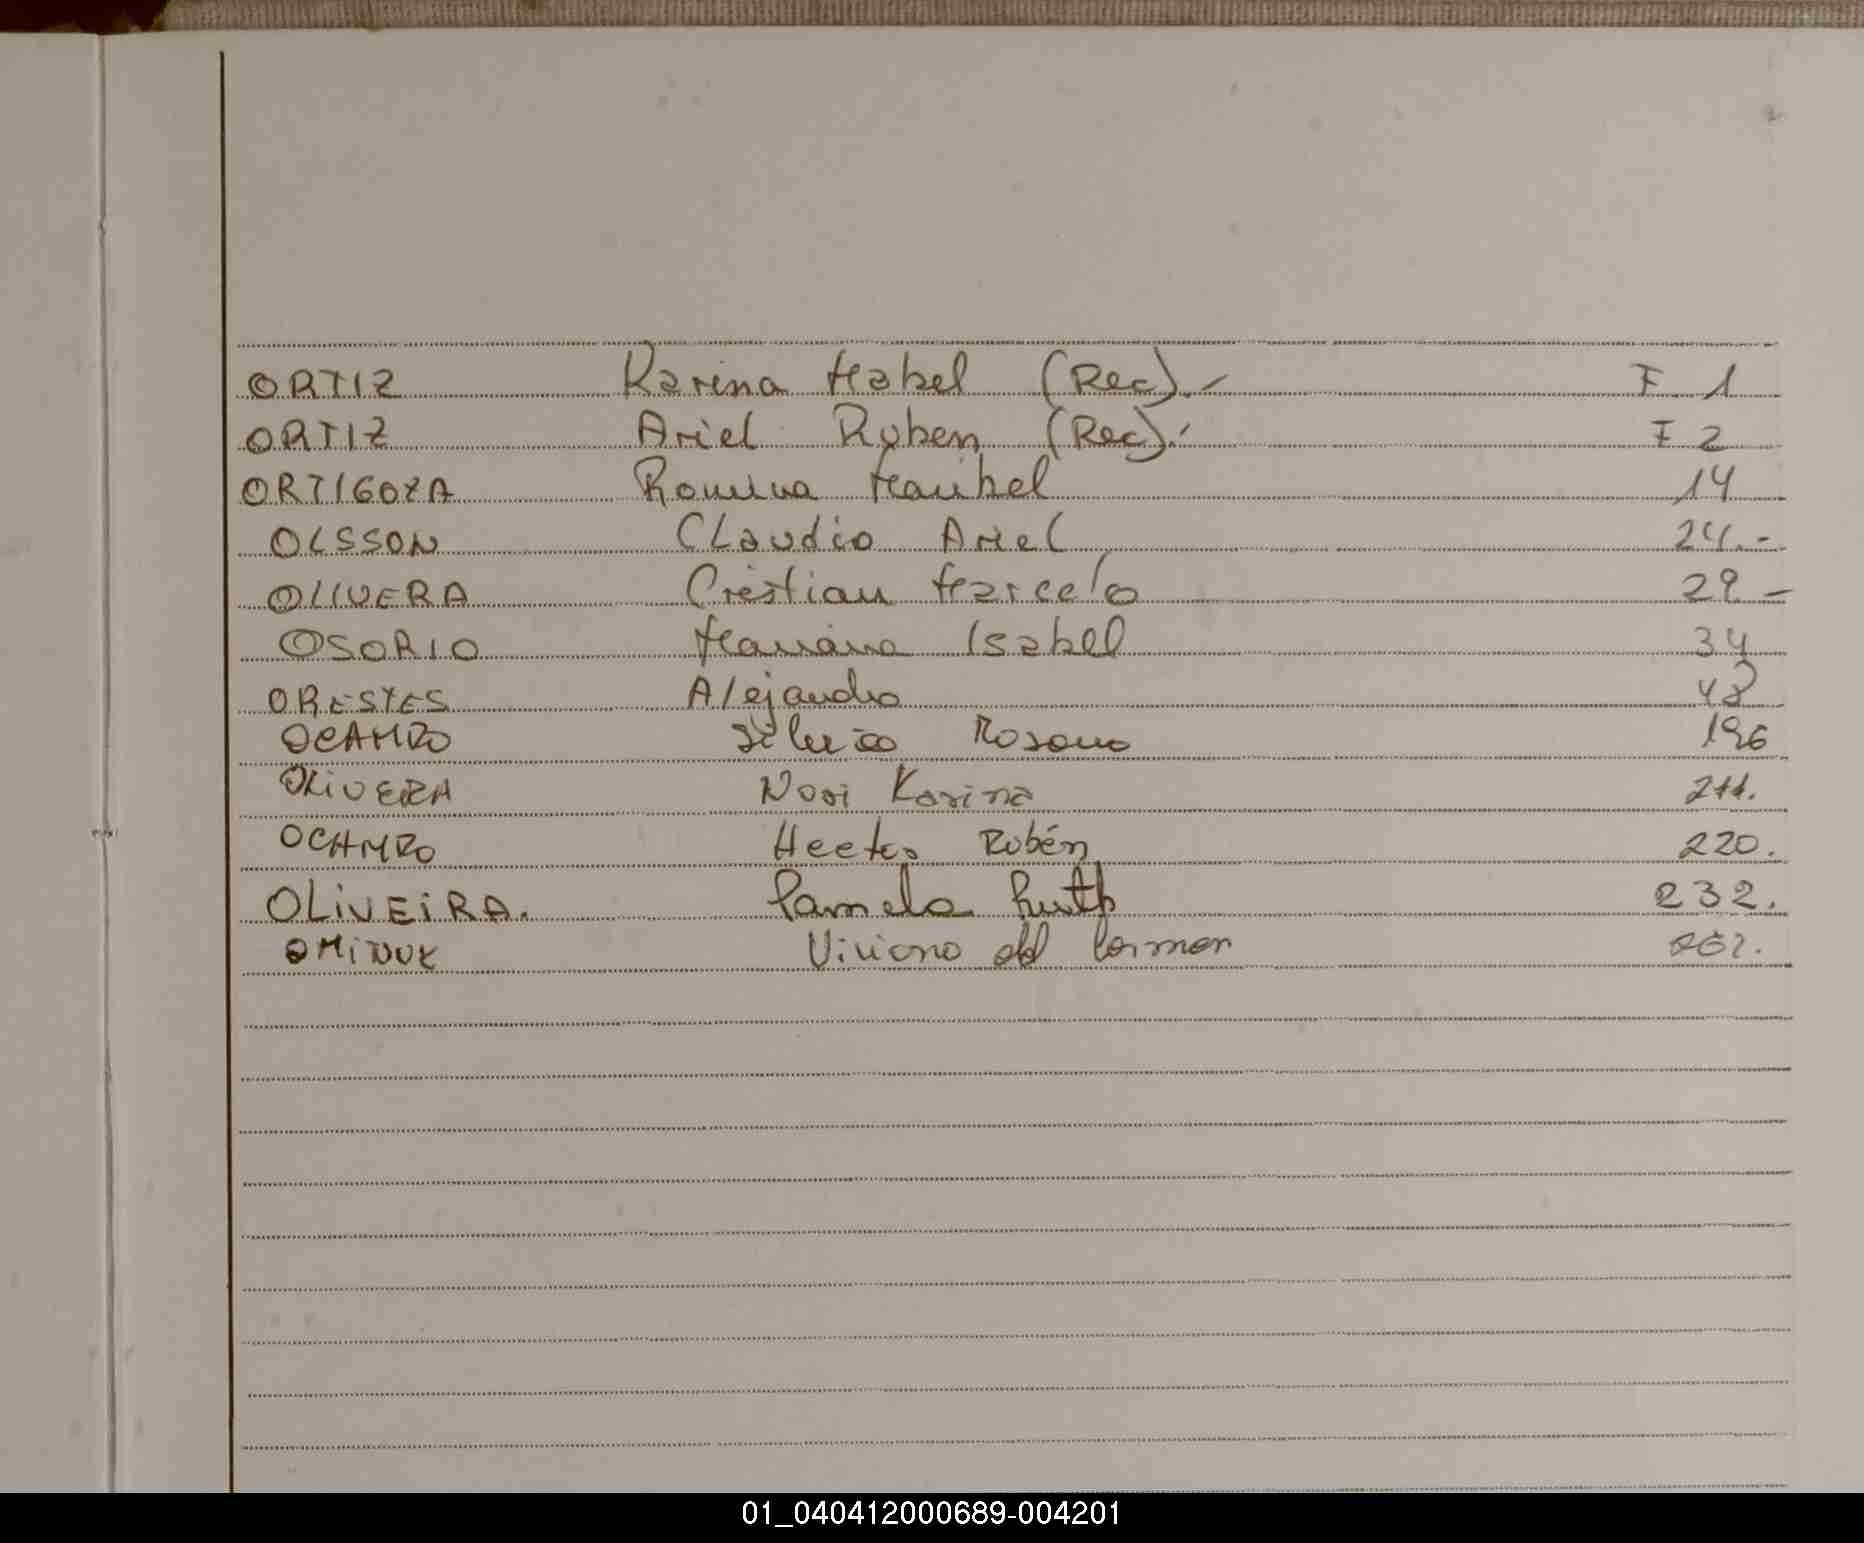 ORTIZ Karina Mabel (Rec).- F 1
ORTIZ Ariel Ruben (Rec).- F 2
ORTIGOZA Romina Maribel 14
OLSSON Claudio Ariel 24.-
OLIVERA Cristian Marcelo 29 -
OSORIO Mariana Isabel 34
ORESTES Alejandro 48
OCAMPO Silvia Rosana 196
OLIVEIRA Karina 211.
OCAMPO Hector Rubén 220.
OLIVEIRA. Pamela Ruth 232.
Viviana del Carmen
01_040412000689-004201